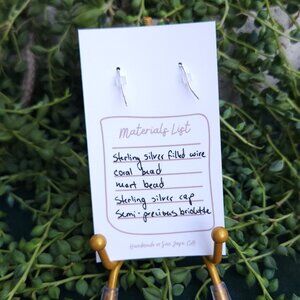 Materials List
Sterling silver filled wire
coral bead
heart bead
Sterling silver cap
Semi-precious briolette
Handmade in San Jose, CA